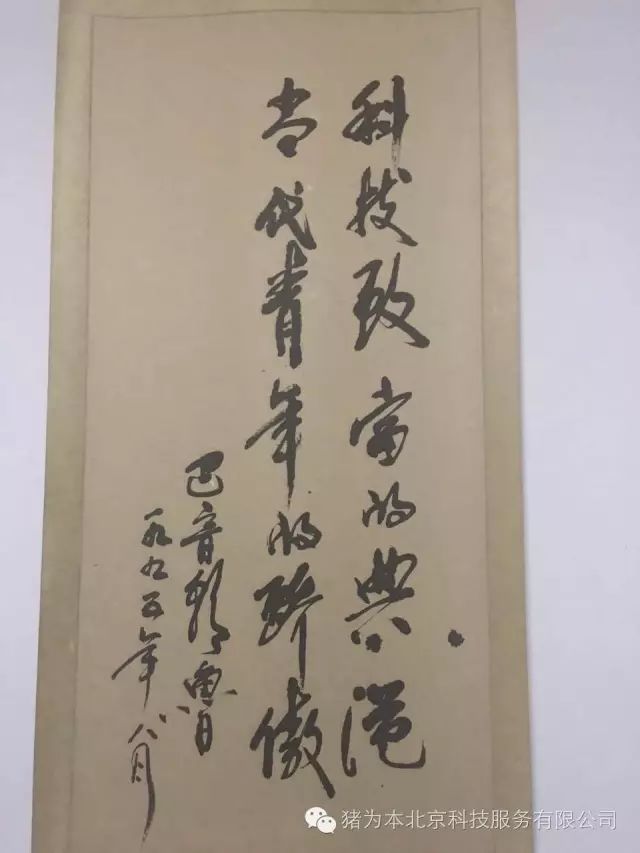 科技致富的典范
当代青年的骄傲
巴音朝鲁
一九九五年八月
猪为本北京科技服务有限公司